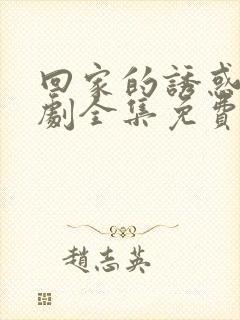 回家的誘惑
劇全集免費
趙志英